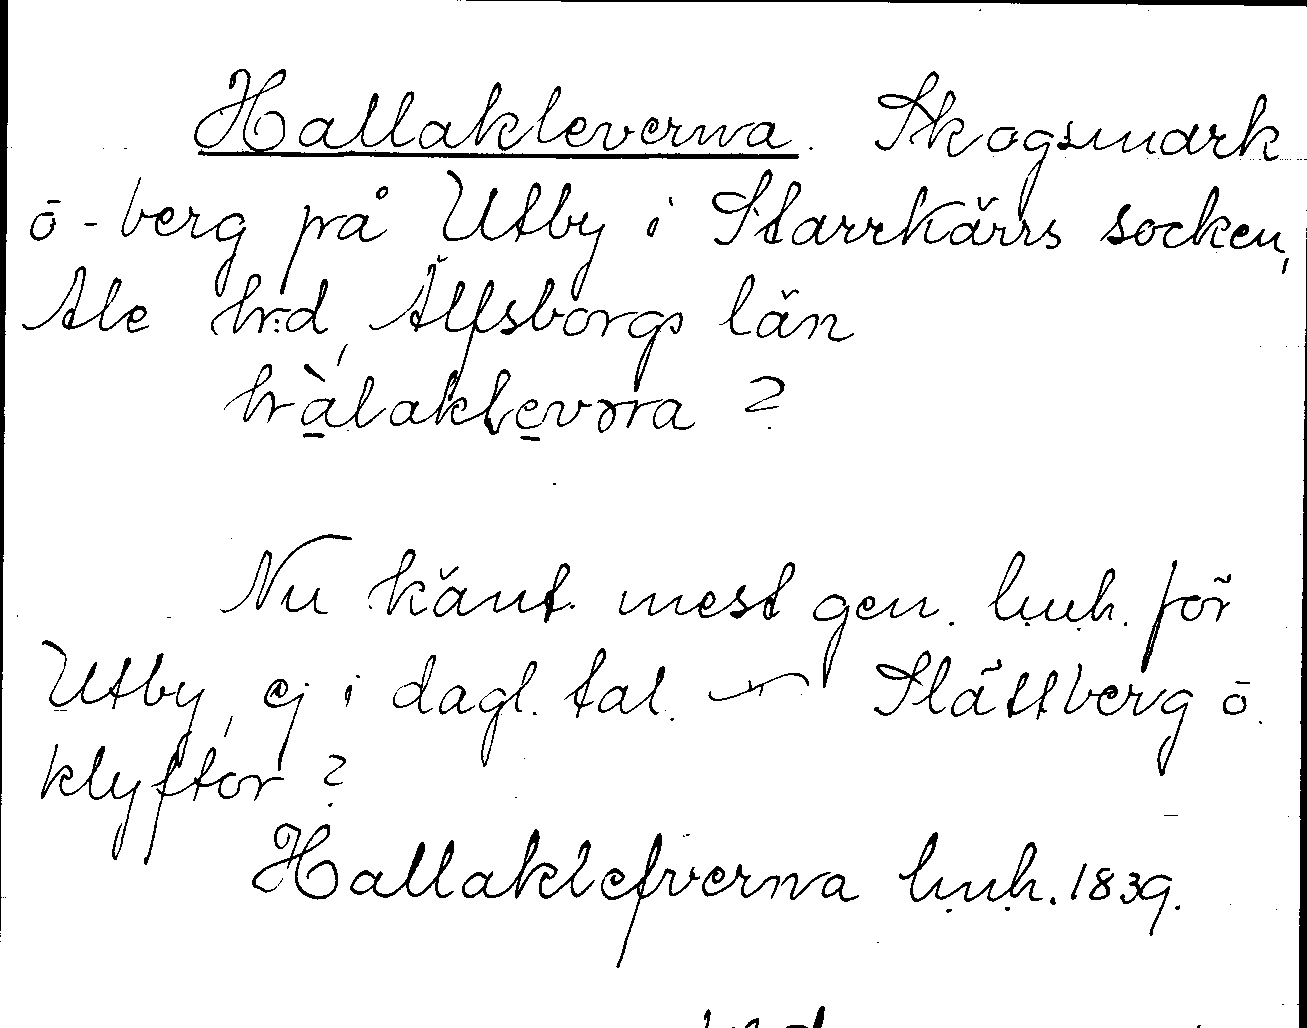 Hallakleverna. Skogsmark
o - berg på Utby i Starrkärrs socken,
Ale hrd, Älfsborgs län
hàlaklevora ?
Nu känt mest gen. l.u.h. för
Utby, ej i dagl. tal. — Slättberg o.
klyftor ?
Hallaklefverna l.u.h. 1839.